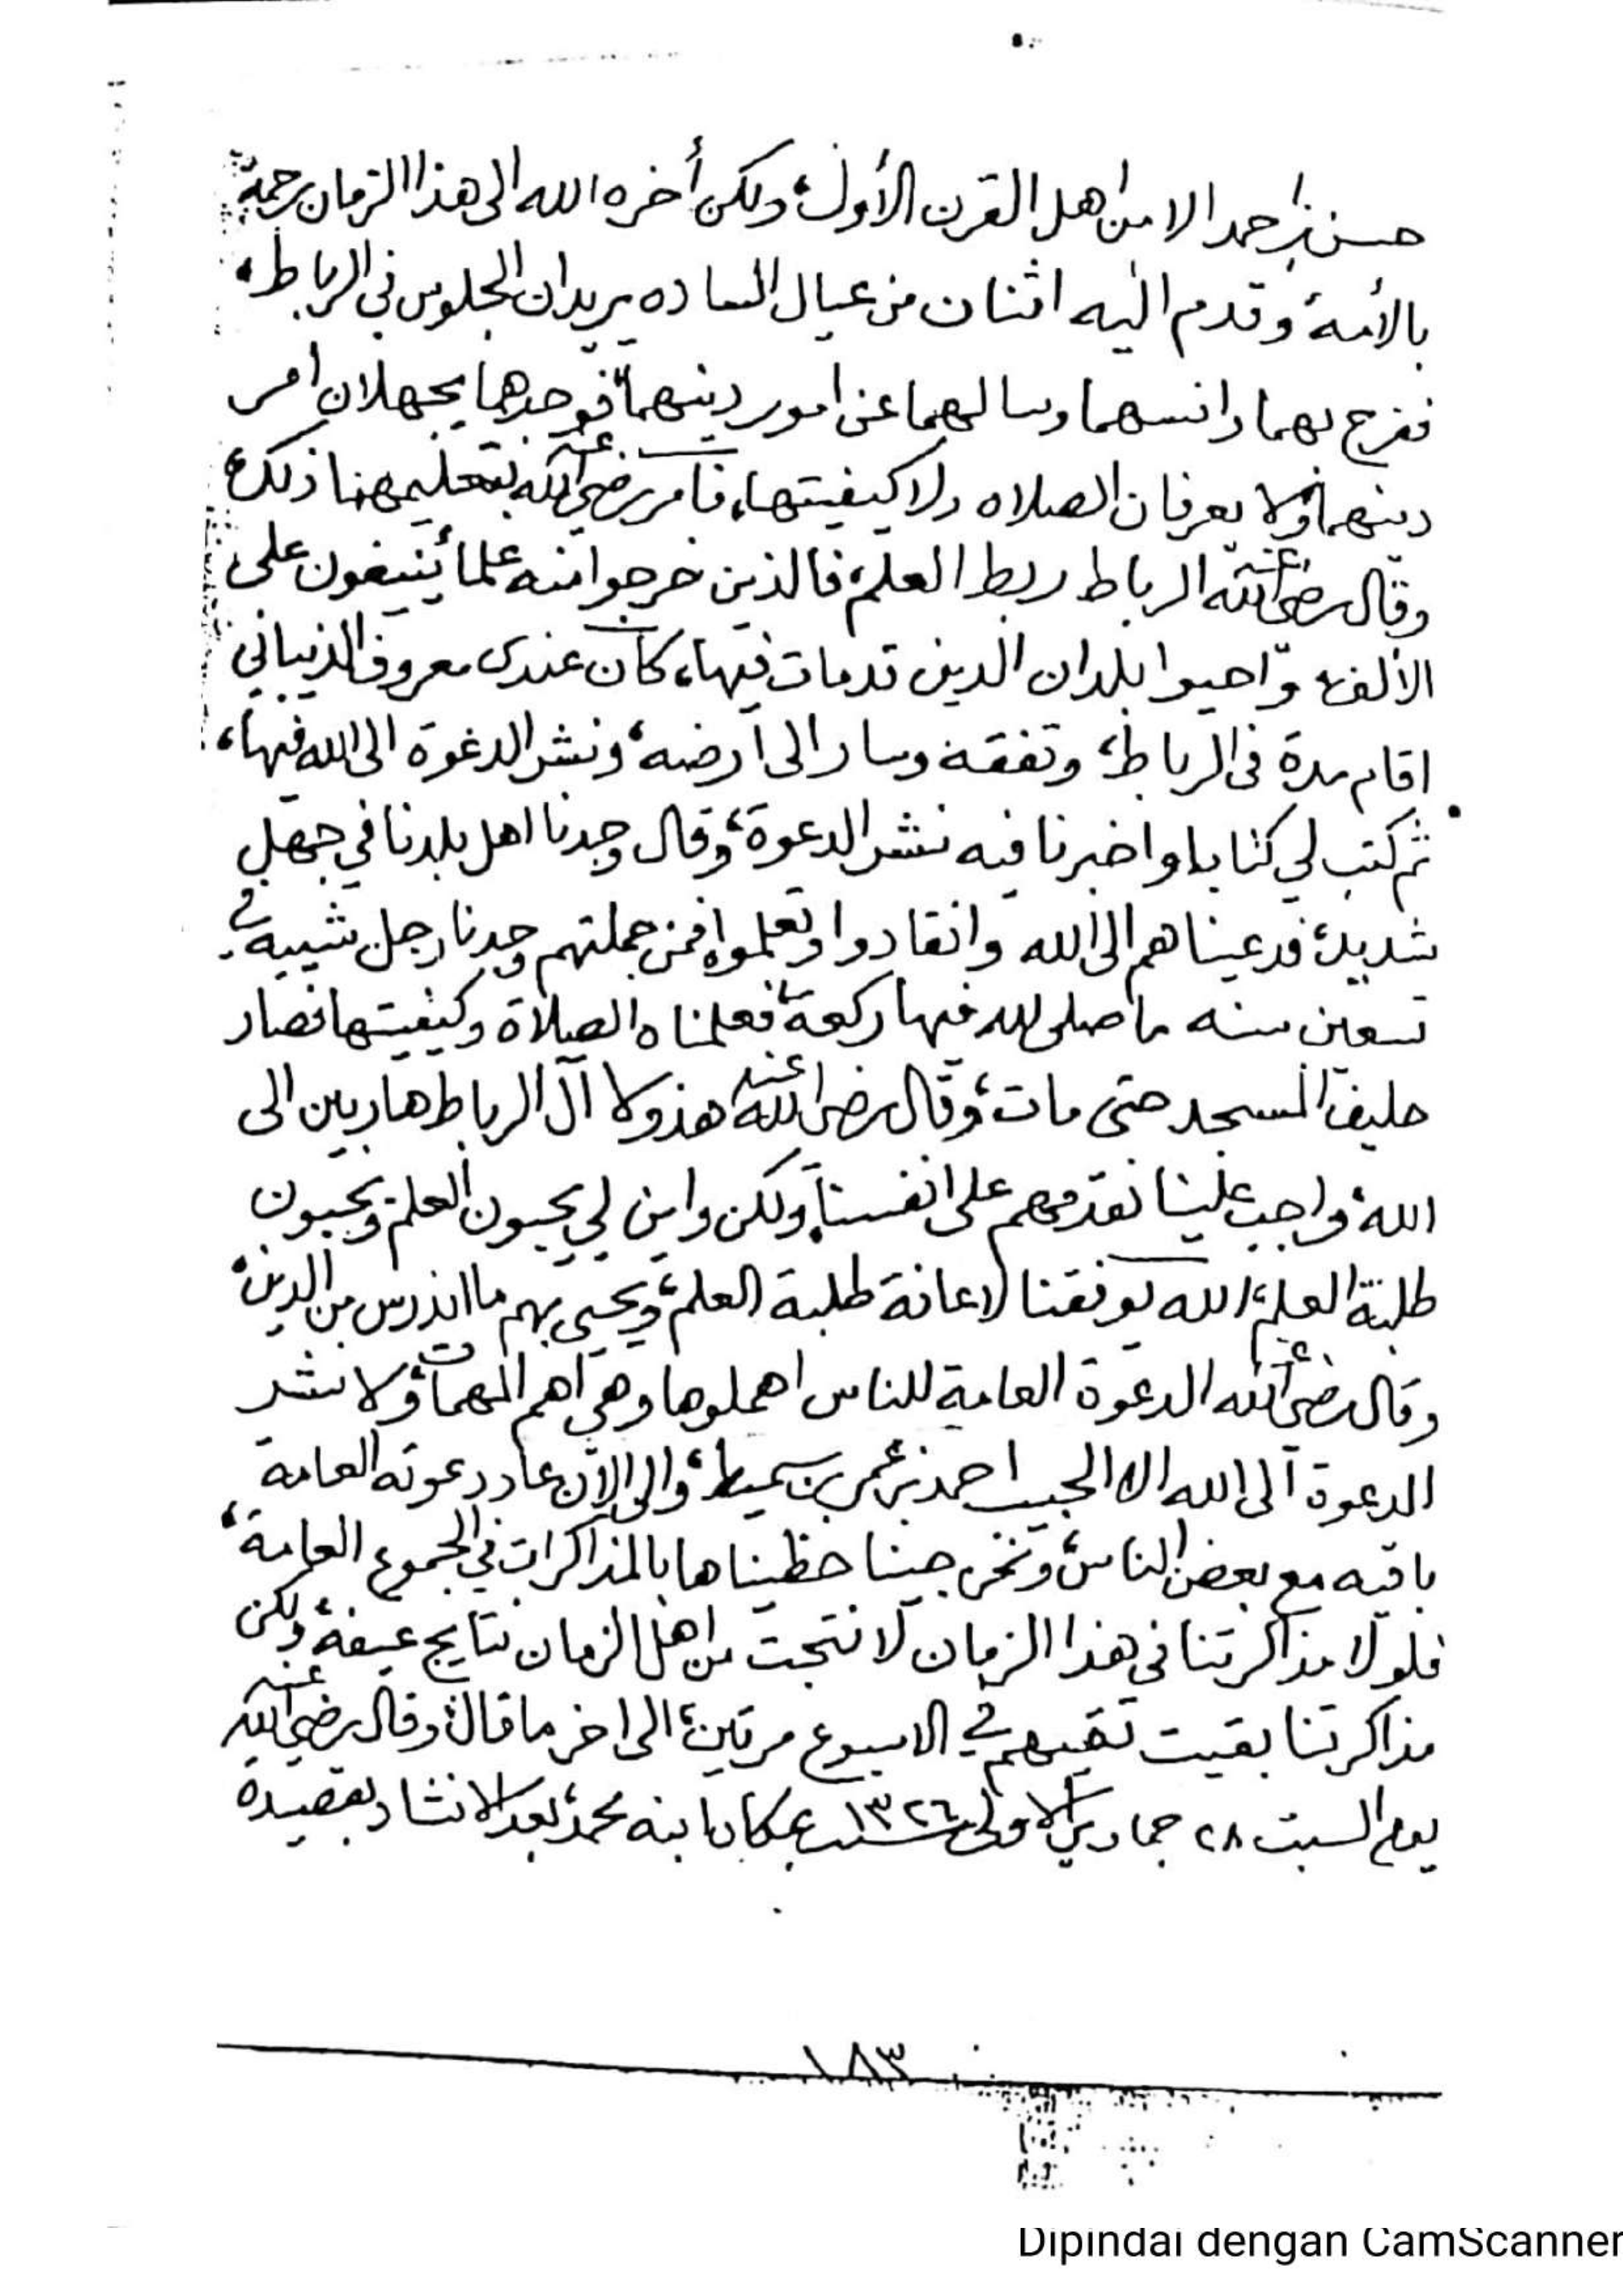 حسن بن احمد الا من اهل القرن الأول، ولكن أخره الله الى هذا الزمان رحمة
بالأمة، وقدم اليه اثنان من عيال الساده يريدان الجلوس في الرباط،
ففرح بهما وانسهما وسالهما عن امور دينهما، فوجدهما يجهلان امر
دينهما، ولا يعرفان الصلاه ولا كيفيتها، فامر رضي الله عنه بتعليمهما ذلك،
وقال رضي الله عنه الرباط ربط العلم، فالذين خرجوا منه علما ينيفون على
الألف، واحيوا بلدان الدين قدمات فيها، كان عندى معروف الذيباني
اقام مدة فى الرباط، وتفقه وسار الى أرضه، ونشر الدعوة الى الله فيها،
ثم كتب لي كتابا واخبرنا فيه نشر الدعوة، وقال وجدنا اهل بلدنا في جهل
شديد، فدعيناهم الى الله وانقادوا وتعلموا، فمن جملتهم وجدنا رجل شيبه في
تسعين سنه ماصلى لله فيها ركعة، فعلمناه الصلاة وكيفيتها فصار
حليف المسجد حتى مات، وقال رضي الله عنه هذولا آل الرباط هاربين الى
الله، واجب علينا نقدمهم على انفسنا، ولكن واين لي يحبون العلم ويحبون
طلبة العلم، الله يوفقنا لاعانة طلبة العلم، ويحيي بهم ما اندرس من الدين،
وقال رضي الله عنه الدعوة العامة للناس اهملوها وهي أهم المهمات، ولا نشر
الدعوة الى الله الا الحبيب احمد بن عمر بن سميط، والى الآن عاد دعوته العامة
باقيه مع بعض الناس، ونحن جينا حظيناها بالمذاكرات في الجموع العامة،
فلولا مذاكرتنا فى هذا الزمان لا نتجت من اهل الزمان نتايج عيفة، ولكن
مذاكرتنا بقيت تقيهم في الاسبوع مرتين، الى اخر ما قال، وقال رضي الله عنه
يوم السبت ٢٨ جمادي الاولى سنة ١٣٢٦ بمكان ابنه محمد، بعد الانشاد بقصيدة
١٨٣
Dipindai dengan CamScanner